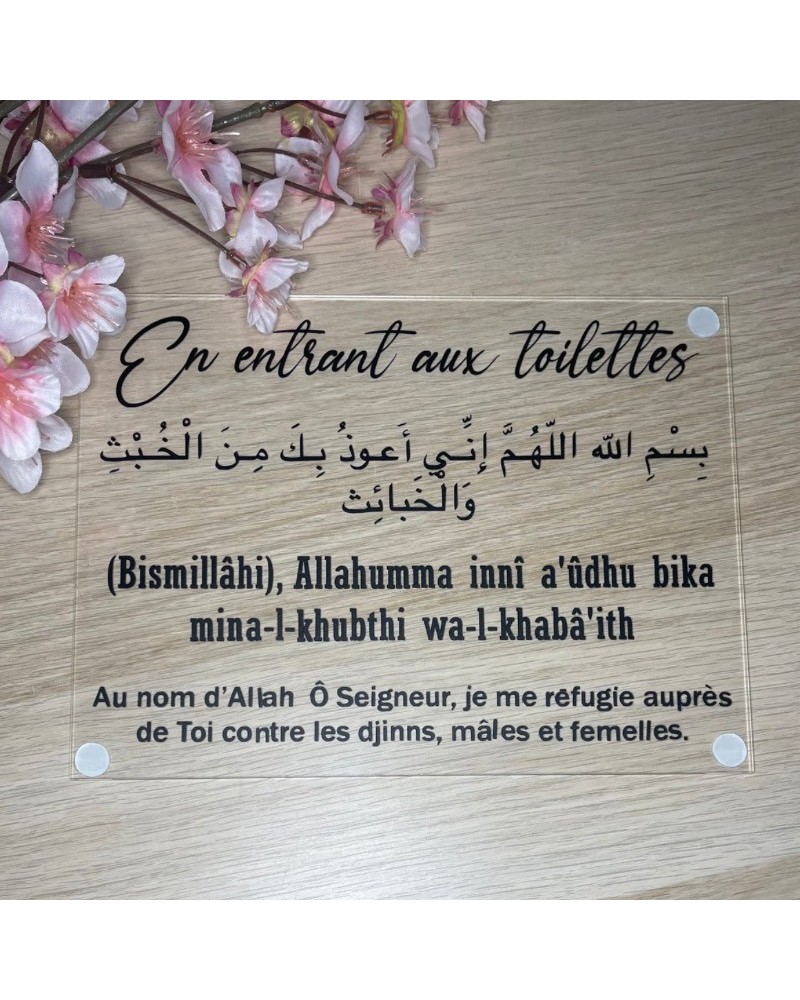 En entrant aux toilettes
بِسْمِ الله اللّهُمَّ إِنِّـي أَعـوذُ بِـكَ مِـنَ الْخُـبْثِ
وَالْخَبائِث
(Bismillâhi), Allahumma innî a'ûdhu bika
mina-l-khubthi wa-l-khabâ'ith
Au nom d'Allah Ô Seigneur, je me réfugie auprès
de Toi contre les djinns, mâles et femelles.